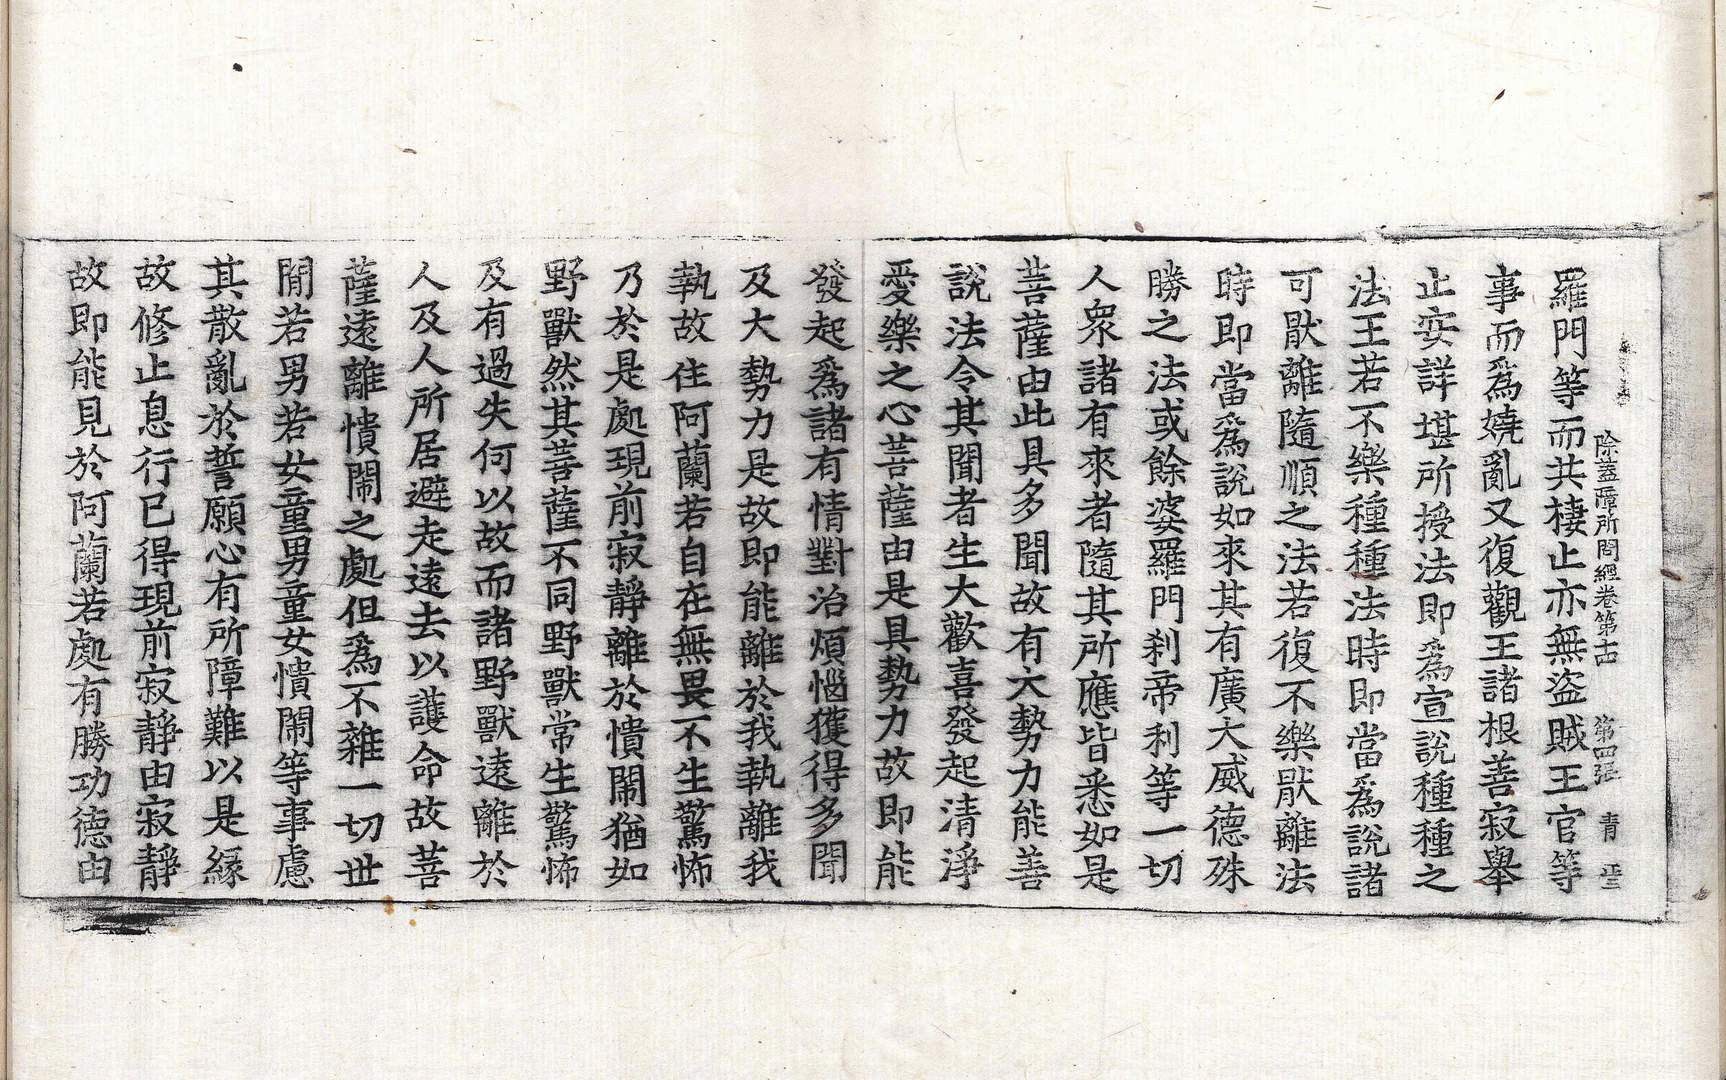 除蓋障所問經卷第十四 第四張 青
羅門等而共棲止亦無盜賊王官等
事而為嬈亂又復觀王諸根善寂舉
止安詳堪所授法即為宣說種種之
法王若不樂種種法時即當為說諸
可猒離隨順之法若復不樂猒離法
時即當為說如來其有廣大威德殊
勝之法或餘婆羅門剎帝利等一切
人衆諸有來者隨其所應皆悉如是
菩薩由此具多聞故有大勢力能善
說法令其聞者生大歡喜發起清淨
愛樂之心菩薩由是具勢力故即能
發起為諸有情對治煩惱獲得多聞
及大勢力是故即能離於我執離我
執故住阿蘭若自在無畏不生驚怖
乃於是處現前寂靜離於憒閙猶如
野獸然其菩薩不同野獸常生驚怖
及有過失何以故而諸野獸遠離於
人及人所居避走遠去以護命故菩
薩遠離憒閙之處但為不雜一切世
間若男若女童男童女憒閙等事慮
其散亂於誓願心有所障難以是緣
故修止息行已得現前寂靜由寂靜
故即能見於阿蘭若處有勝功德由